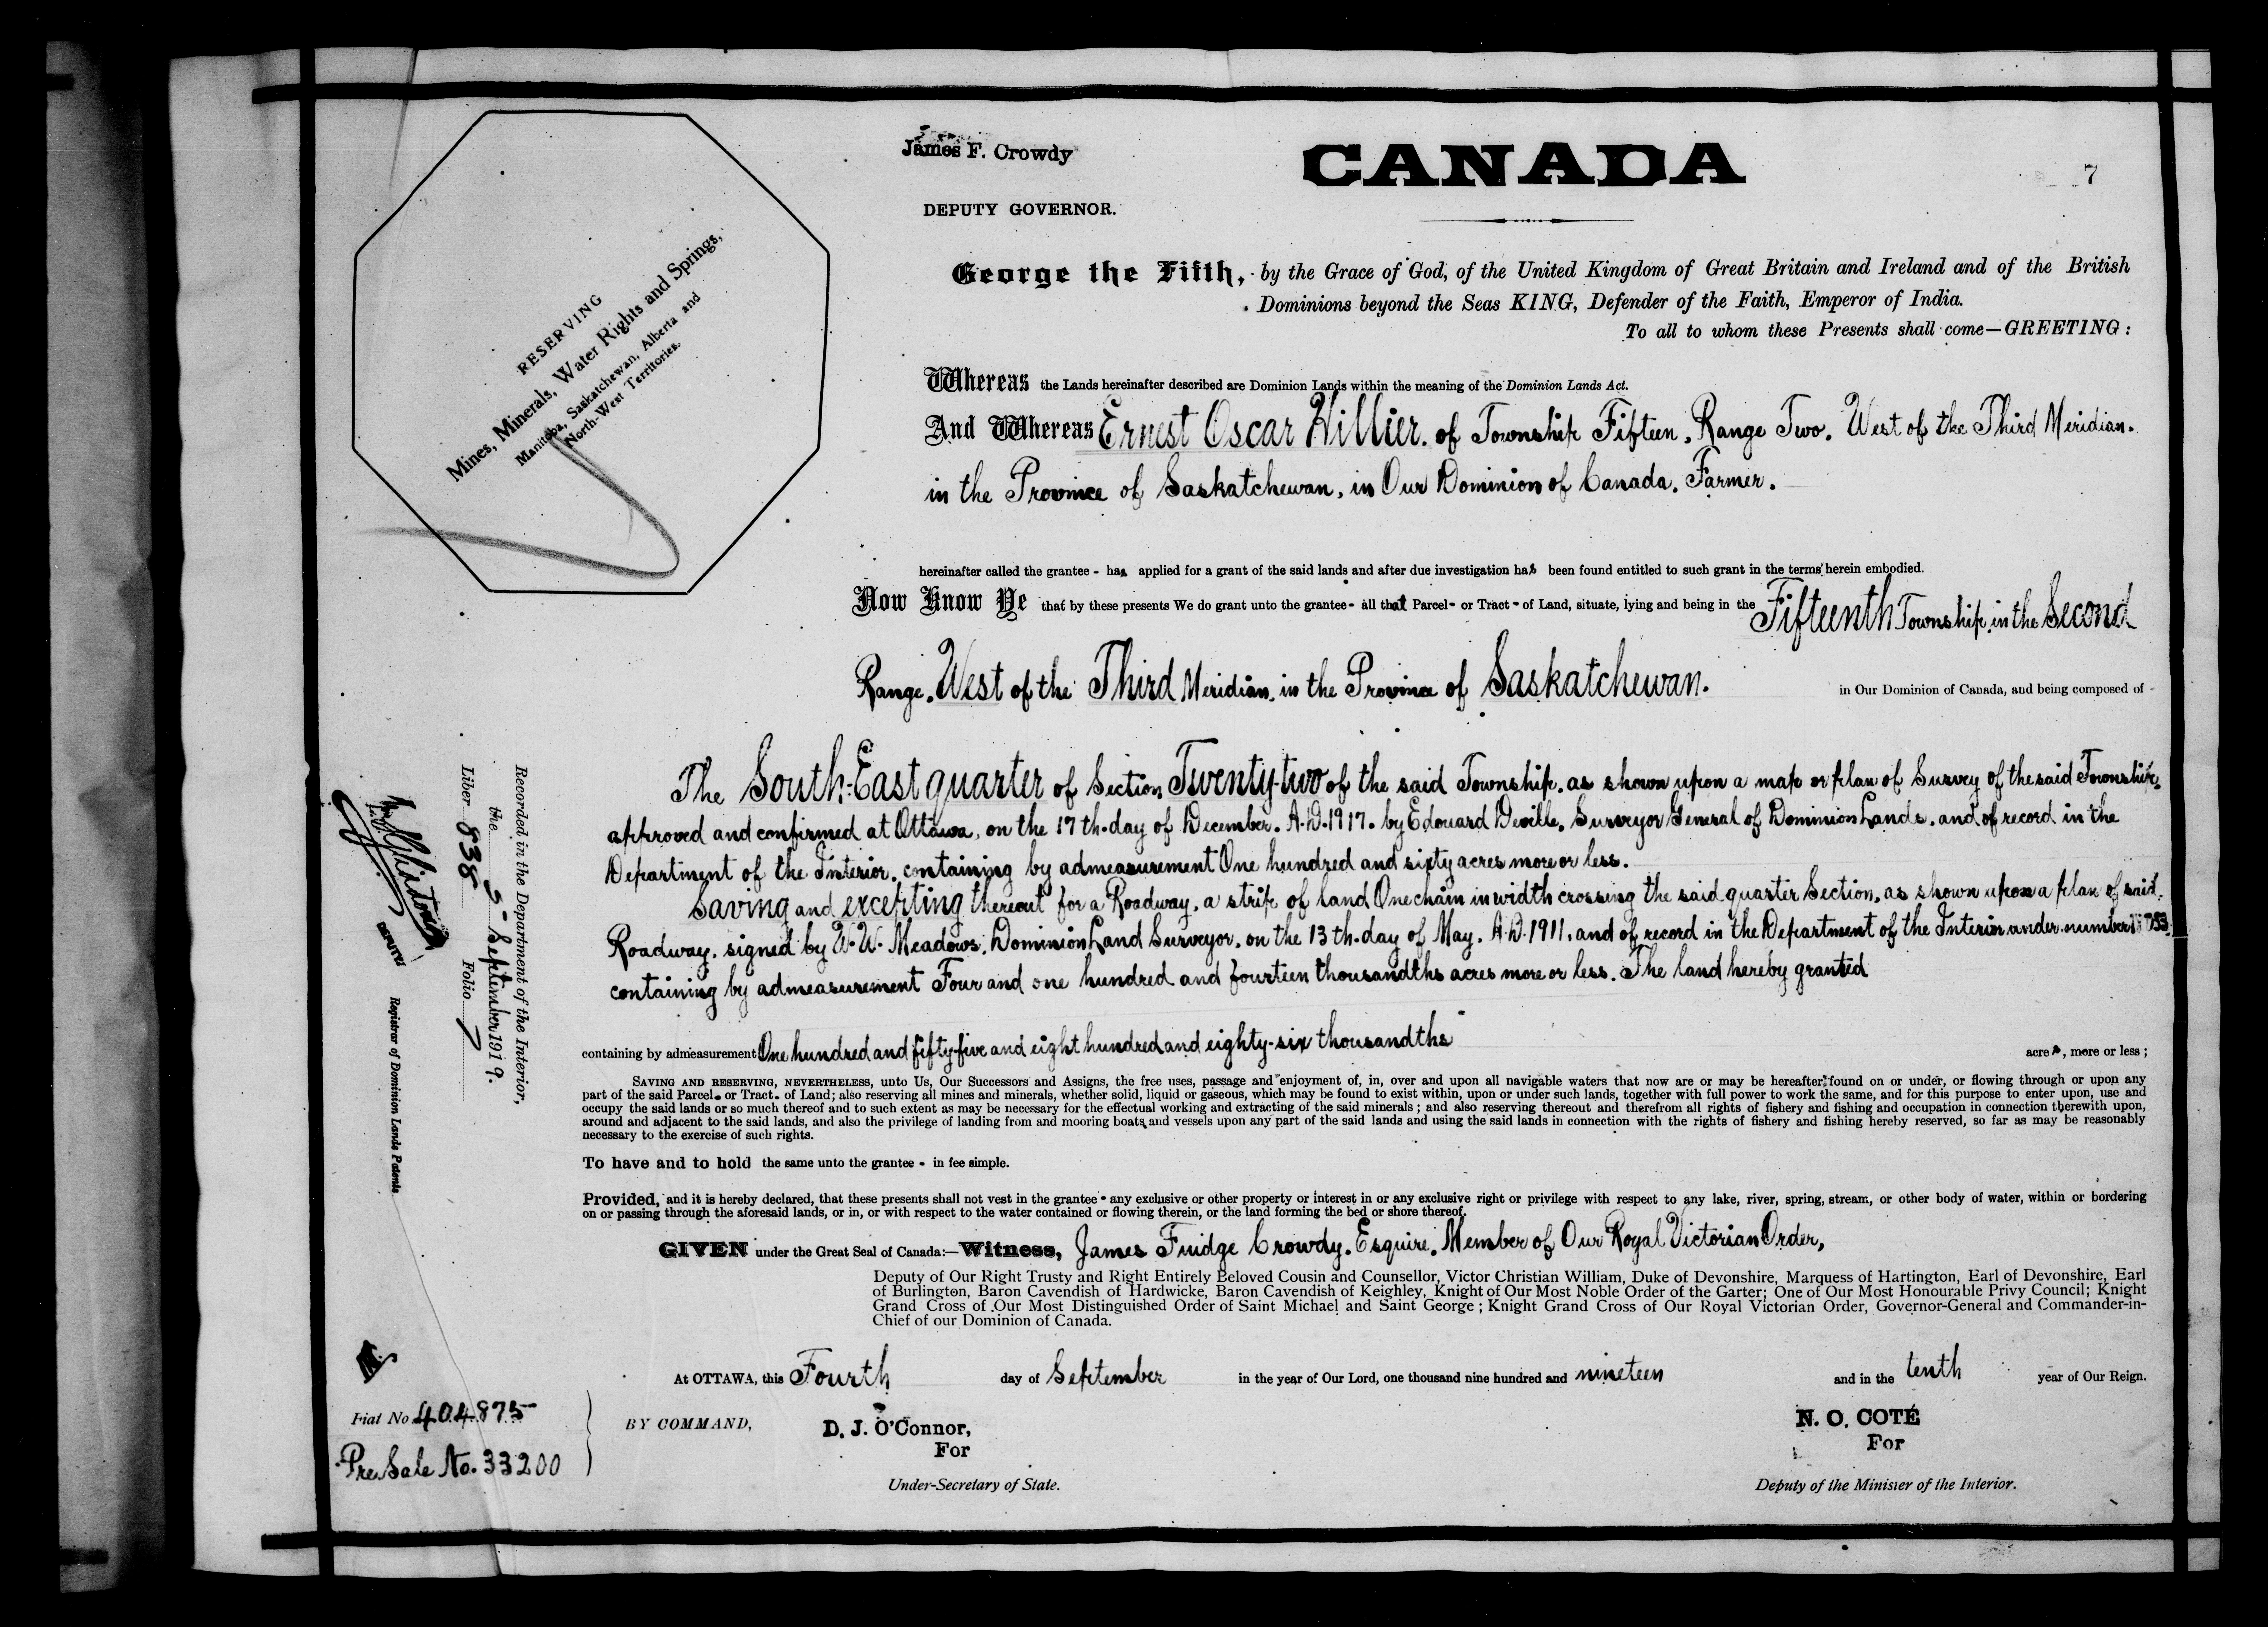 James F. Crowdy
DEPUTY GOVERNOR.
CANADA
7
RESERVING
Mines, Minerals, Water Rights and Springs,
Manitoba, Saskatchewan, Alberta and
North-West Territories.
George the Fifth, by the Grace of God, of the United Kingdom of Great Britain and Ireland and of the British
Dominions beyond the Seas KING, Defender of the Faith, Emperor of India.
To all to whom these Presents shall come—GREETING:
Whereas the Lands hereinafter described are Dominion Lands within the meaning of the Dominion Lands Act.
And Whereas Ernest Oscar Hillier. of Township Fifteen, Range Two, West of the Third Meridian.
in the Province of Saskatchewan, in Our Dominion of Canada, Farmer.
hereinafter called the grantee - has applied for a grant of the said lands and after due investigation has been found entitled to such grant in the terms herein embodied.
Now Know Ye that by these presents We do grant unto the grantee - all that Parcel - or Tract - of Land, situate, lying and being in the Fifteenth Township, in the Second
Range, West of the Third Meridian, in the Province of Saskatchewan. in Our Dominion of Canada, and being composed of -
The South-East quarter of Section Twenty-two of the said Township, as shown upon a map or plan of Survey of the said Township,
approved and confirmed at Ottawa, on the 17th day of December, A.D. 1917. by Edouard Deville, Surveyor General of Dominion Lands, and of record in the
Department of the Interior, containing by admeasurement One hundred and sixty acres more or less.
Saving and excepting thereout for a Roadway, a strip of land One chain in width crossing the said quarter Section, as shown upon a plan of said
Roadway, signed by W. W. Meadows, Dominion Land Surveyor, on the 13th day of May, A.D. 1911, and of record in the Department of the Interior under number
containing by admeasurement Four and one hundred and fourteen thousandths acres more or less. The land hereby granted
containing by admeasurement One hundred and fifty-five and eight hundred and eighty-six thousandths
acres, more or less;
SAVING AND RESERVING, NEVERTHELESS, unto Us, Our Successors and Assigns, the free uses, passage and enjoyment of, in, over and upon all navigable waters that now are or may be hereafter found on or under, or flowing through or upon any
part of the said Parcel. or Tract. of Land; also reserving all mines and minerals, whether solid, liquid or gaseous, which may be found to exist within, upon or under such lands, together with full power to work the same, and for this purpose to enter upon, use and
occupy the said lands or so much thereof and to such extent as may be necessary for the effectual working and extracting of the said minerals; and also reserving thereout and therefrom all rights of fishery and fishing and occupation in connection therewith upon,
around and adjacent to the said lands, and also the privilege of landing from and mooring boats and vessels upon any part of the said lands and using the said lands in connection with the rights of fishery and fishing hereby reserved, so far as may be reasonably
necessary to the exercise of such rights.
To have and to hold the same unto the grantee - in fee simple.
Provided, and it is hereby declared, that these presents shall not vest in the grantee - any exclusive or other property or interest in or any exclusive right or privilege with respect to any lake, river, spring, stream, or other body of water, within or bordering
on or passing through the aforesaid lands, or in, or with respect to the water contained or flowing therein, or the land forming the bed or shore thereof.
GIVEN under the Great Seal of Canada:—Witness, James Fuidge Crowdy, Esquire, Member of Our Royal Victorian Order,
Deputy of Our Right Trusty and Right Entirely Beloved Cousin and Counsellor, Victor Christian William, Duke of Devonshire, Marquess of Hartington, Earl of Devonshire, Earl
of Burlington, Baron Cavendish of Hardwicke, Baron Cavendish of Keighley, Knight of Our Most Noble Order of the Garter; One of Our Most Honourable Privy Council; Knight
Grand Cross of Our Most Distinguished Order of Saint Michael and Saint George; Knight Grand Cross of Our Royal Victorian Order, Governor-General and Commander-in-
Chief of our Dominion of Canada.
At OTTAWA, this Fourth day of September in the year of Our Lord, one thousand nine hundred and nineteen and in the tenth year of Our Reign.
BY COMMAND,
D. J. O'Connor,
For
Under-Secretary of State.
N. O. COTÉ
For
Deputy of the Minister of the Interior.
Fiat No 404875
Pre. Sale No. 33200
Recorded in the Department of the Interior,
the 5 September 1919.
Liber 838 Folio 7
DEPUTY Registrar of Dominion Lands Patents